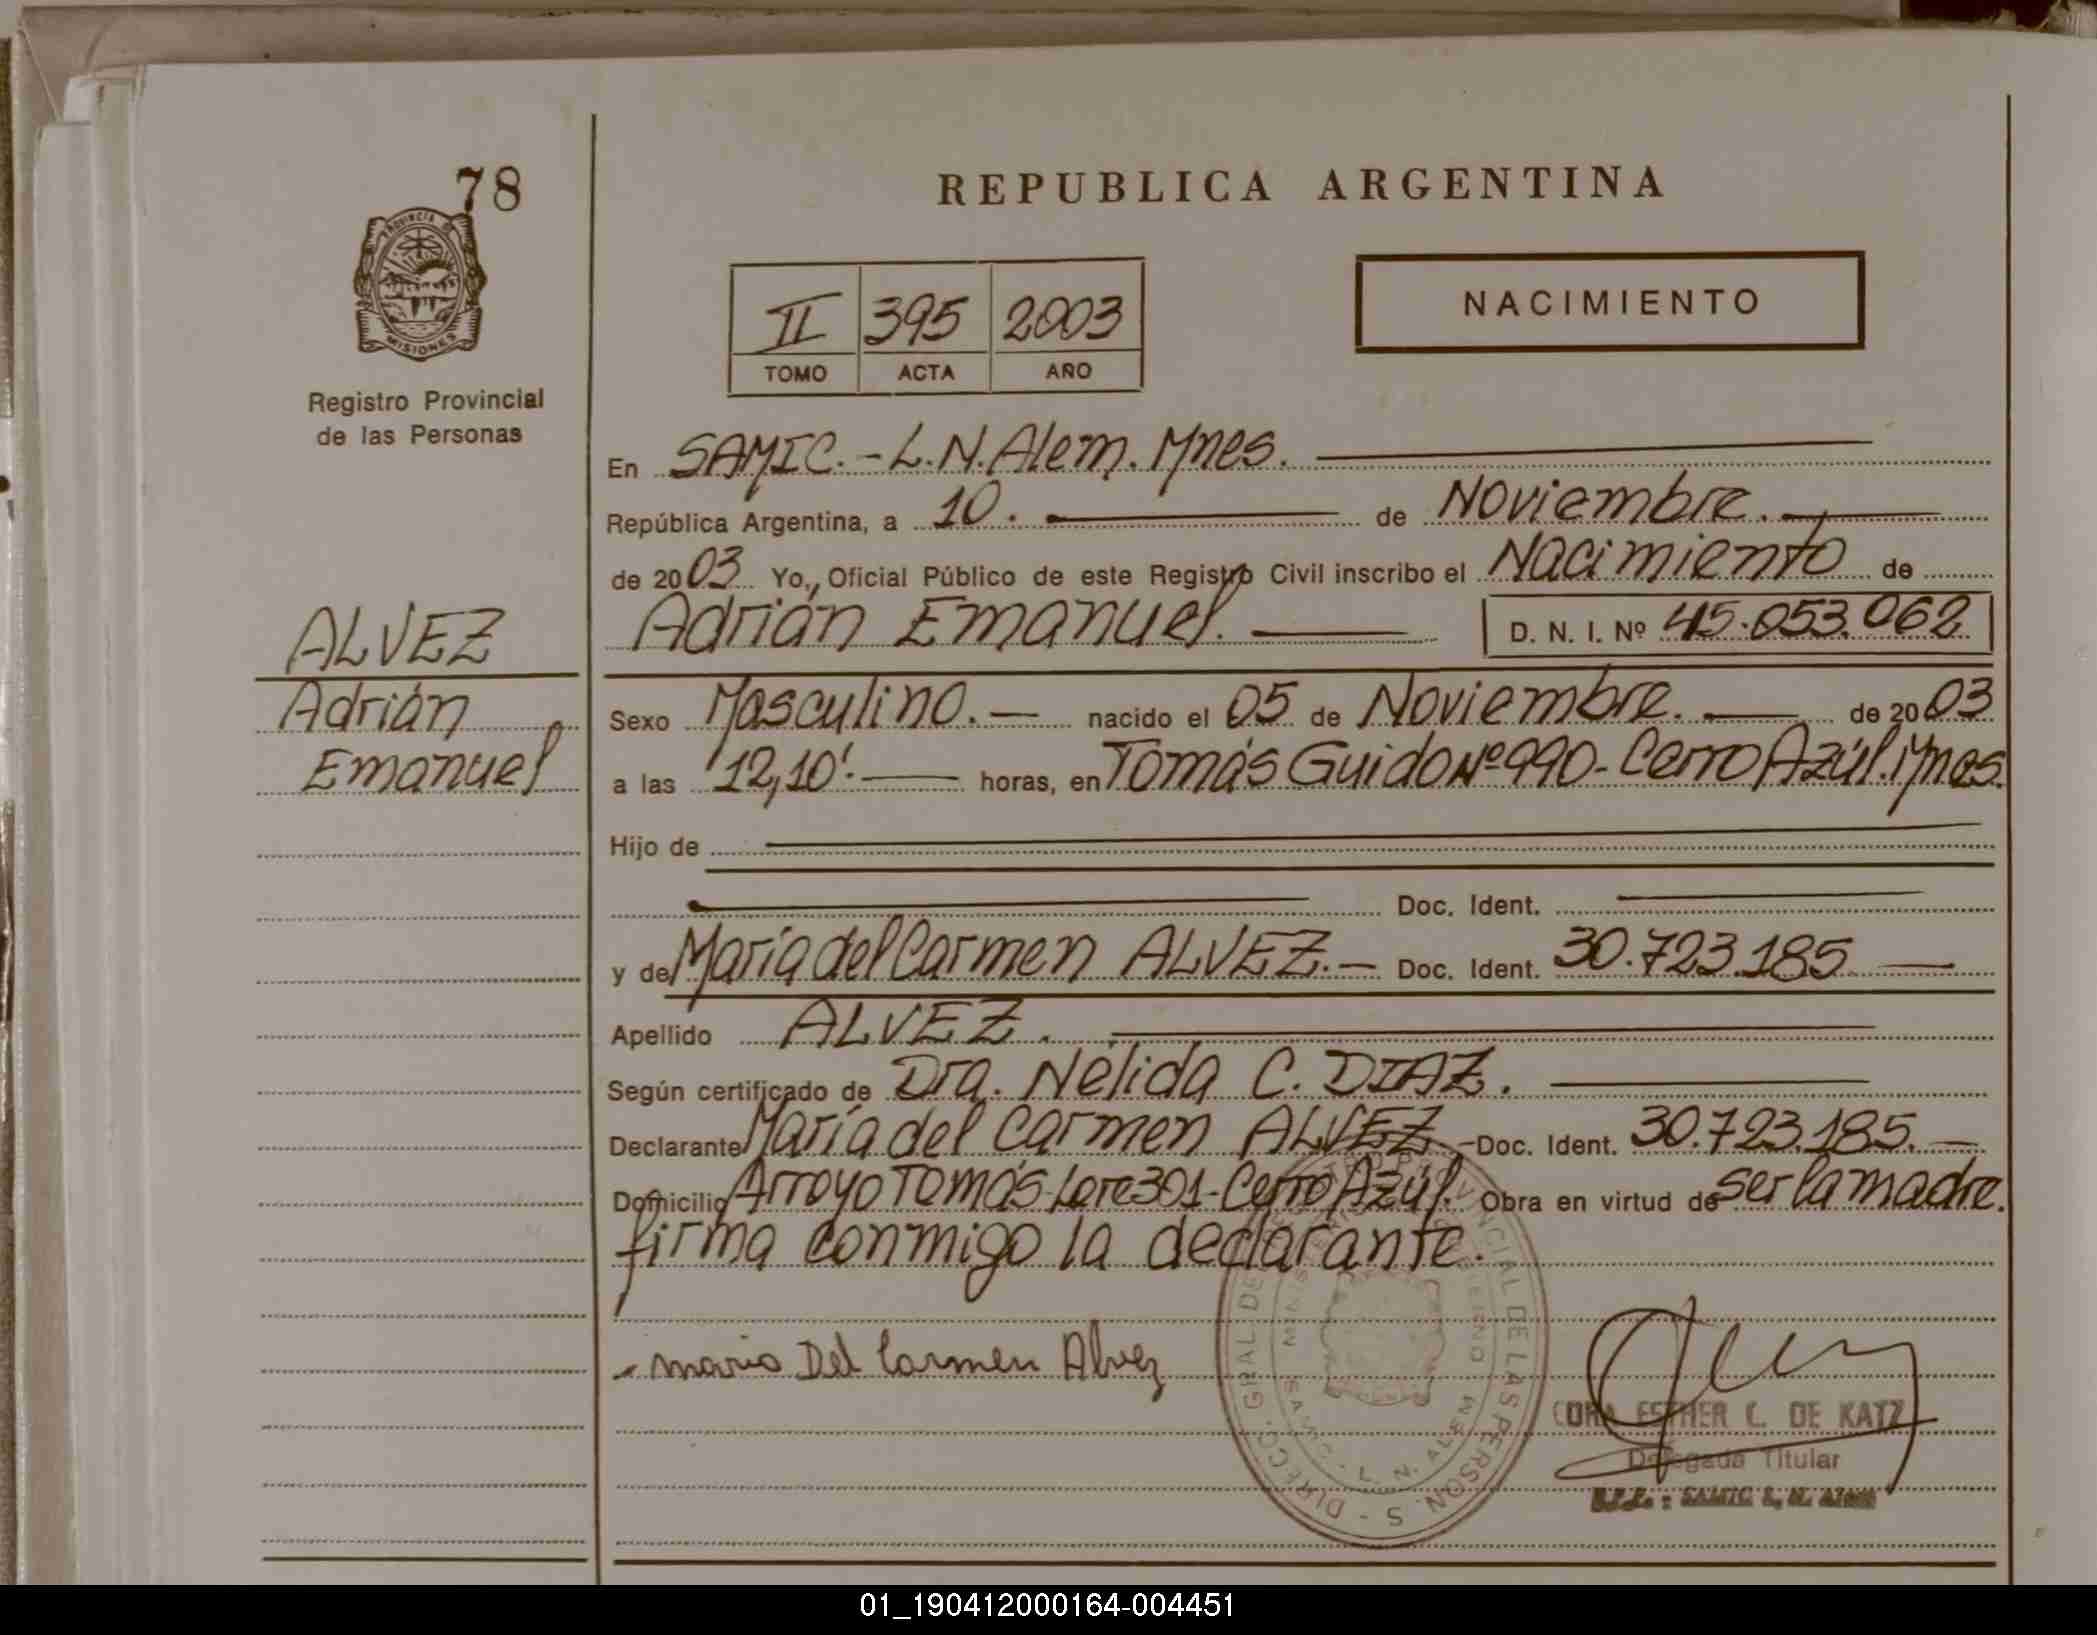 78
PROVINCIA DE
MISIONES
Registro Provincial
de las Personas
REPUBLICA ARGENTINA
II 395 2003
TOMO ACTA AÑO
NACIMIENTO
En SAMIC.-L.N.Alem.Mnes.
República Argentina, a 10. de Noviembre.
de 2003 Yo, Oficial Público de este Registro Civil inscribo el Nacimiento de
Adrián Emanuel. D. N. I. Nº 45.053.062
ALVEZ
Adrián
Emanuel
Sexo Masculino.- nacido el 05 de Noviembre. de 2003
a las 12,10'. horas, en Tomás Guido Nº 990-Cerro Azúl.Mnes.
Hijo de
Doc. Ident.
y de María del Carmen ALVEZ.- Doc. Ident. 30.723.185
Apellido ALVEZ.
Según certificado de Dra. Nélida C. DIAZ.
Declarante María del Carmen ALVEZ - Doc. Ident. 30.723.185.
Domicilio Arroyo Tomás-Lote 301-Cerro Azúl. Obra en virtud de ser la madre.
firma conmigo la declarante.
maria Del Carmen Alvez
DIRECC. GRAL. DE PROVINCIAL DE LAS PERSON S
SAMIC - L. N. ALEM
CORA ESTHER C. DE KATZ
Delegada Titular
SAMIC L. N. Alem
01_190412000164-004451